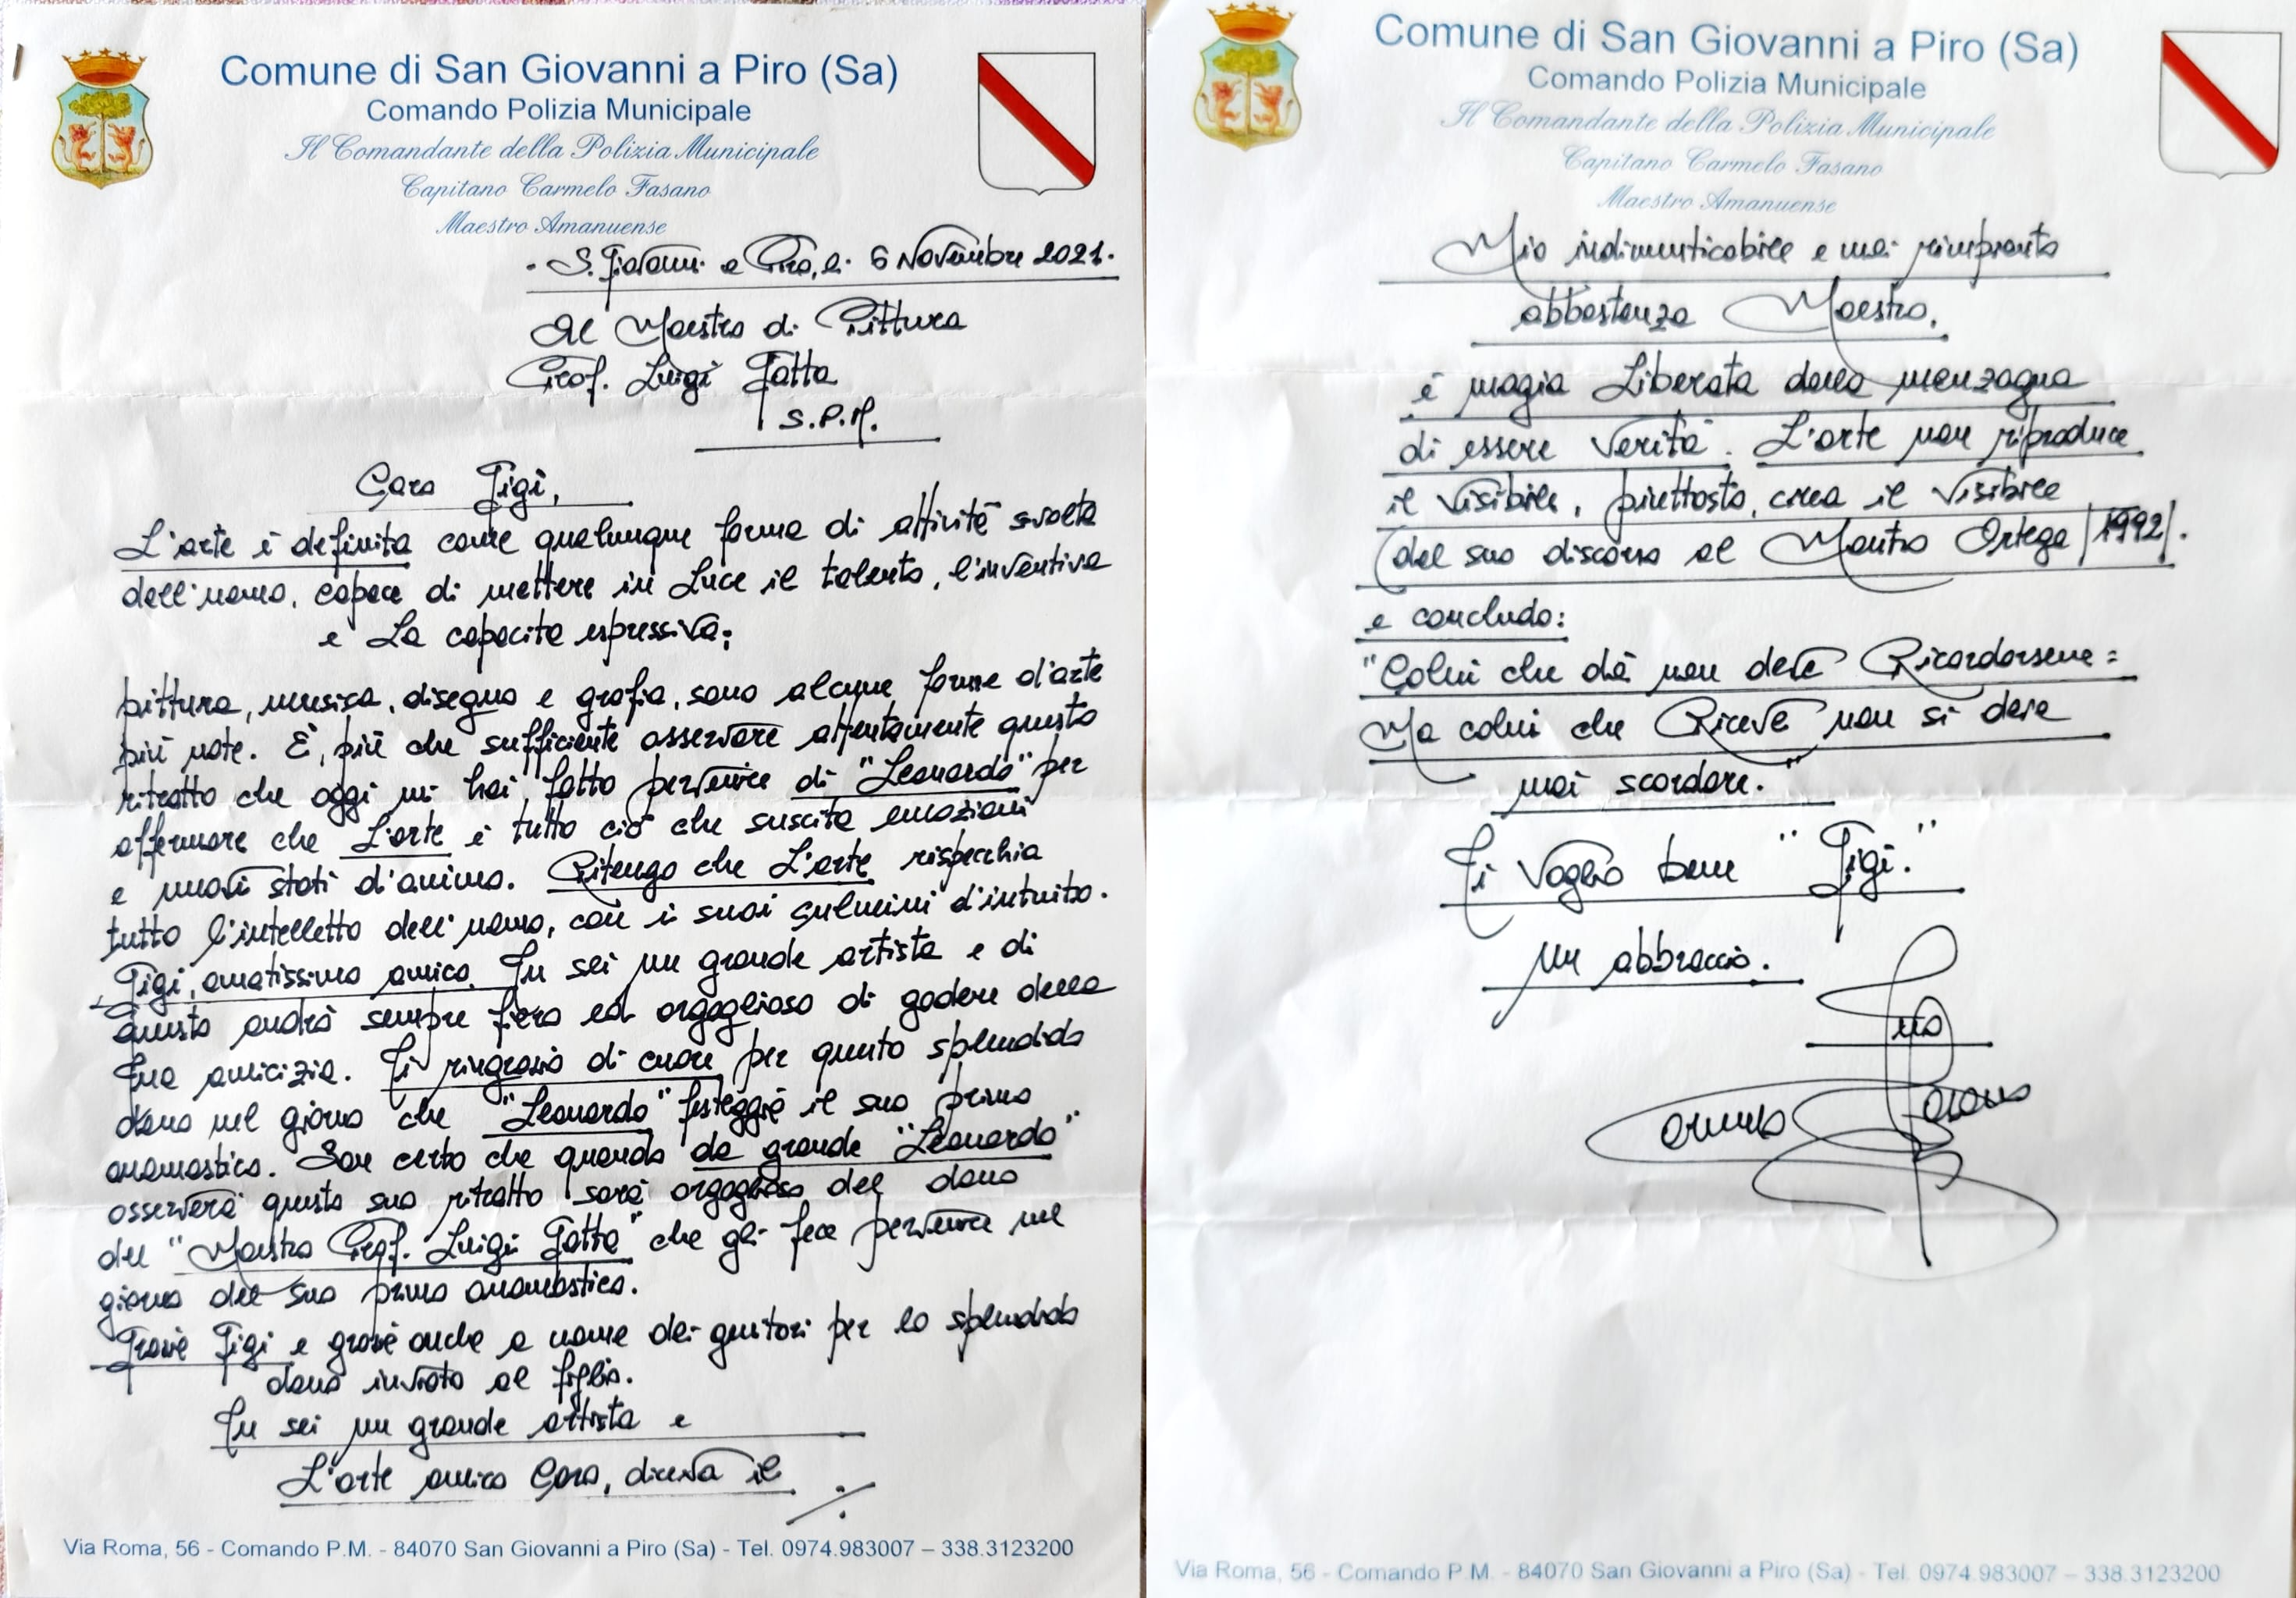 Comune di San Giovanni a Piro (Sa)
Comando Polizia Municipale
Il Comandante della Polizia Municipale
Capitano Carmelo Fasano
Maestro Amanuense
S. Giovanni a Piro, li 6 Novembre 2021.
Al Maestro di Pittura
Prof. Luigi Gatta
S.P.M.
Caro Gigi,
L'arte è definita come qualunque forma di attività svolta
dell'uomo, capace di mettere in Luce il talento, l'inventiva
e La capacità espressiva;
pittura, musica, disegno e grafia, sono alcune forme d'arte
più note. È, più che sufficiente osservare attentamente questo
ritratto che oggi mi hai fatto pervenire di "Leonardo" per
affermare che L'arte è tutto ciò che suscita emozioni
e nuovi stati d'animo. Ritengo che L'arte rispecchia
tutto l'intelletto dell'uomo, con i suoi fulmini d'intuito.
Gigi, amatissimo amico. Tu sei un grande artista e di
questo andrò sempre fiero ed orgoglioso di godere della
Tua amicizia. Ti ringrazio di cuore per questo splendido
dono nel giorno che "Leonardo" festeggia il suo primo
onomastico. Son certo che quando da grande "Leonardo"
osserverà questo suo ritratto sarà orgoglioso del dono
del "Maestro Prof. Luigi Gatta" che gli fece pervenire nel
giorno del suo primo onomastico.
Grazie Gigi e grazie anche a nome dei genitori per lo splendido
dono inviato al figlio.
Tu sei un grande artista e
L'arte amico Caro, diceva il ./.
Via Roma, 56 - Comando P.M. - 84070 San Giovanni a Piro (Sa) - Tel. 0974.983007 – 338.3123200
Comune di San Giovanni a Piro (Sa)
Comando Polizia Municipale
Il Comandante della Polizia Municipale
Capitano Carmelo Fasano
Maestro Amanuense
Mio indimenticabile e mai rimpianto
abbastanza Maestro,
è magia Liberata dalla menzogna
di essere Verità. L'arte non riproduce
il Visibile, piuttosto, crea il Visibile
(dal suo discorso al Maestro Ortega |1992|.
e concludo:
"Colui che dà non deve Ricordarsene:
Ma colui che Riceve non si deve
mai scordare."
Ti Voglio bene "Gigi."
Un abbraccio.
Tuo
Carmelo Fasano
Via Roma, 56 - Comando P.M. - 84070 San Giovanni a Piro (Sa) - Tel. 0974.983007 – 338.3123200